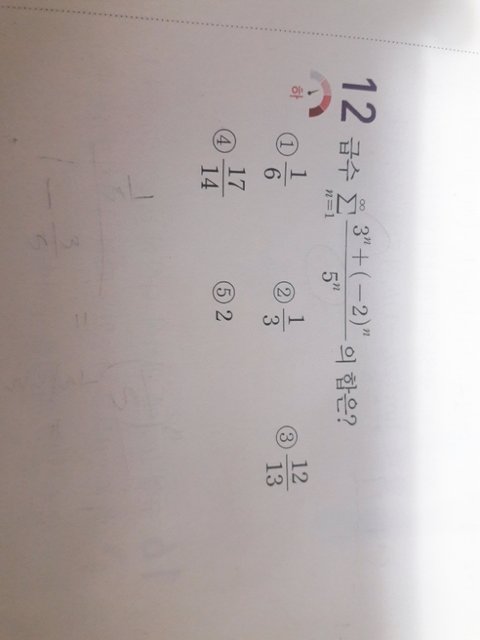 12 급수 \sum_{n=1}^{∞} \frac{3^n+(-2)^n}{5^n} 의 합은?
하
① \frac{1}{6} ② \frac{1}{3} ③ \frac{12}{13}
④ \frac{17}{14} ⑤ 2